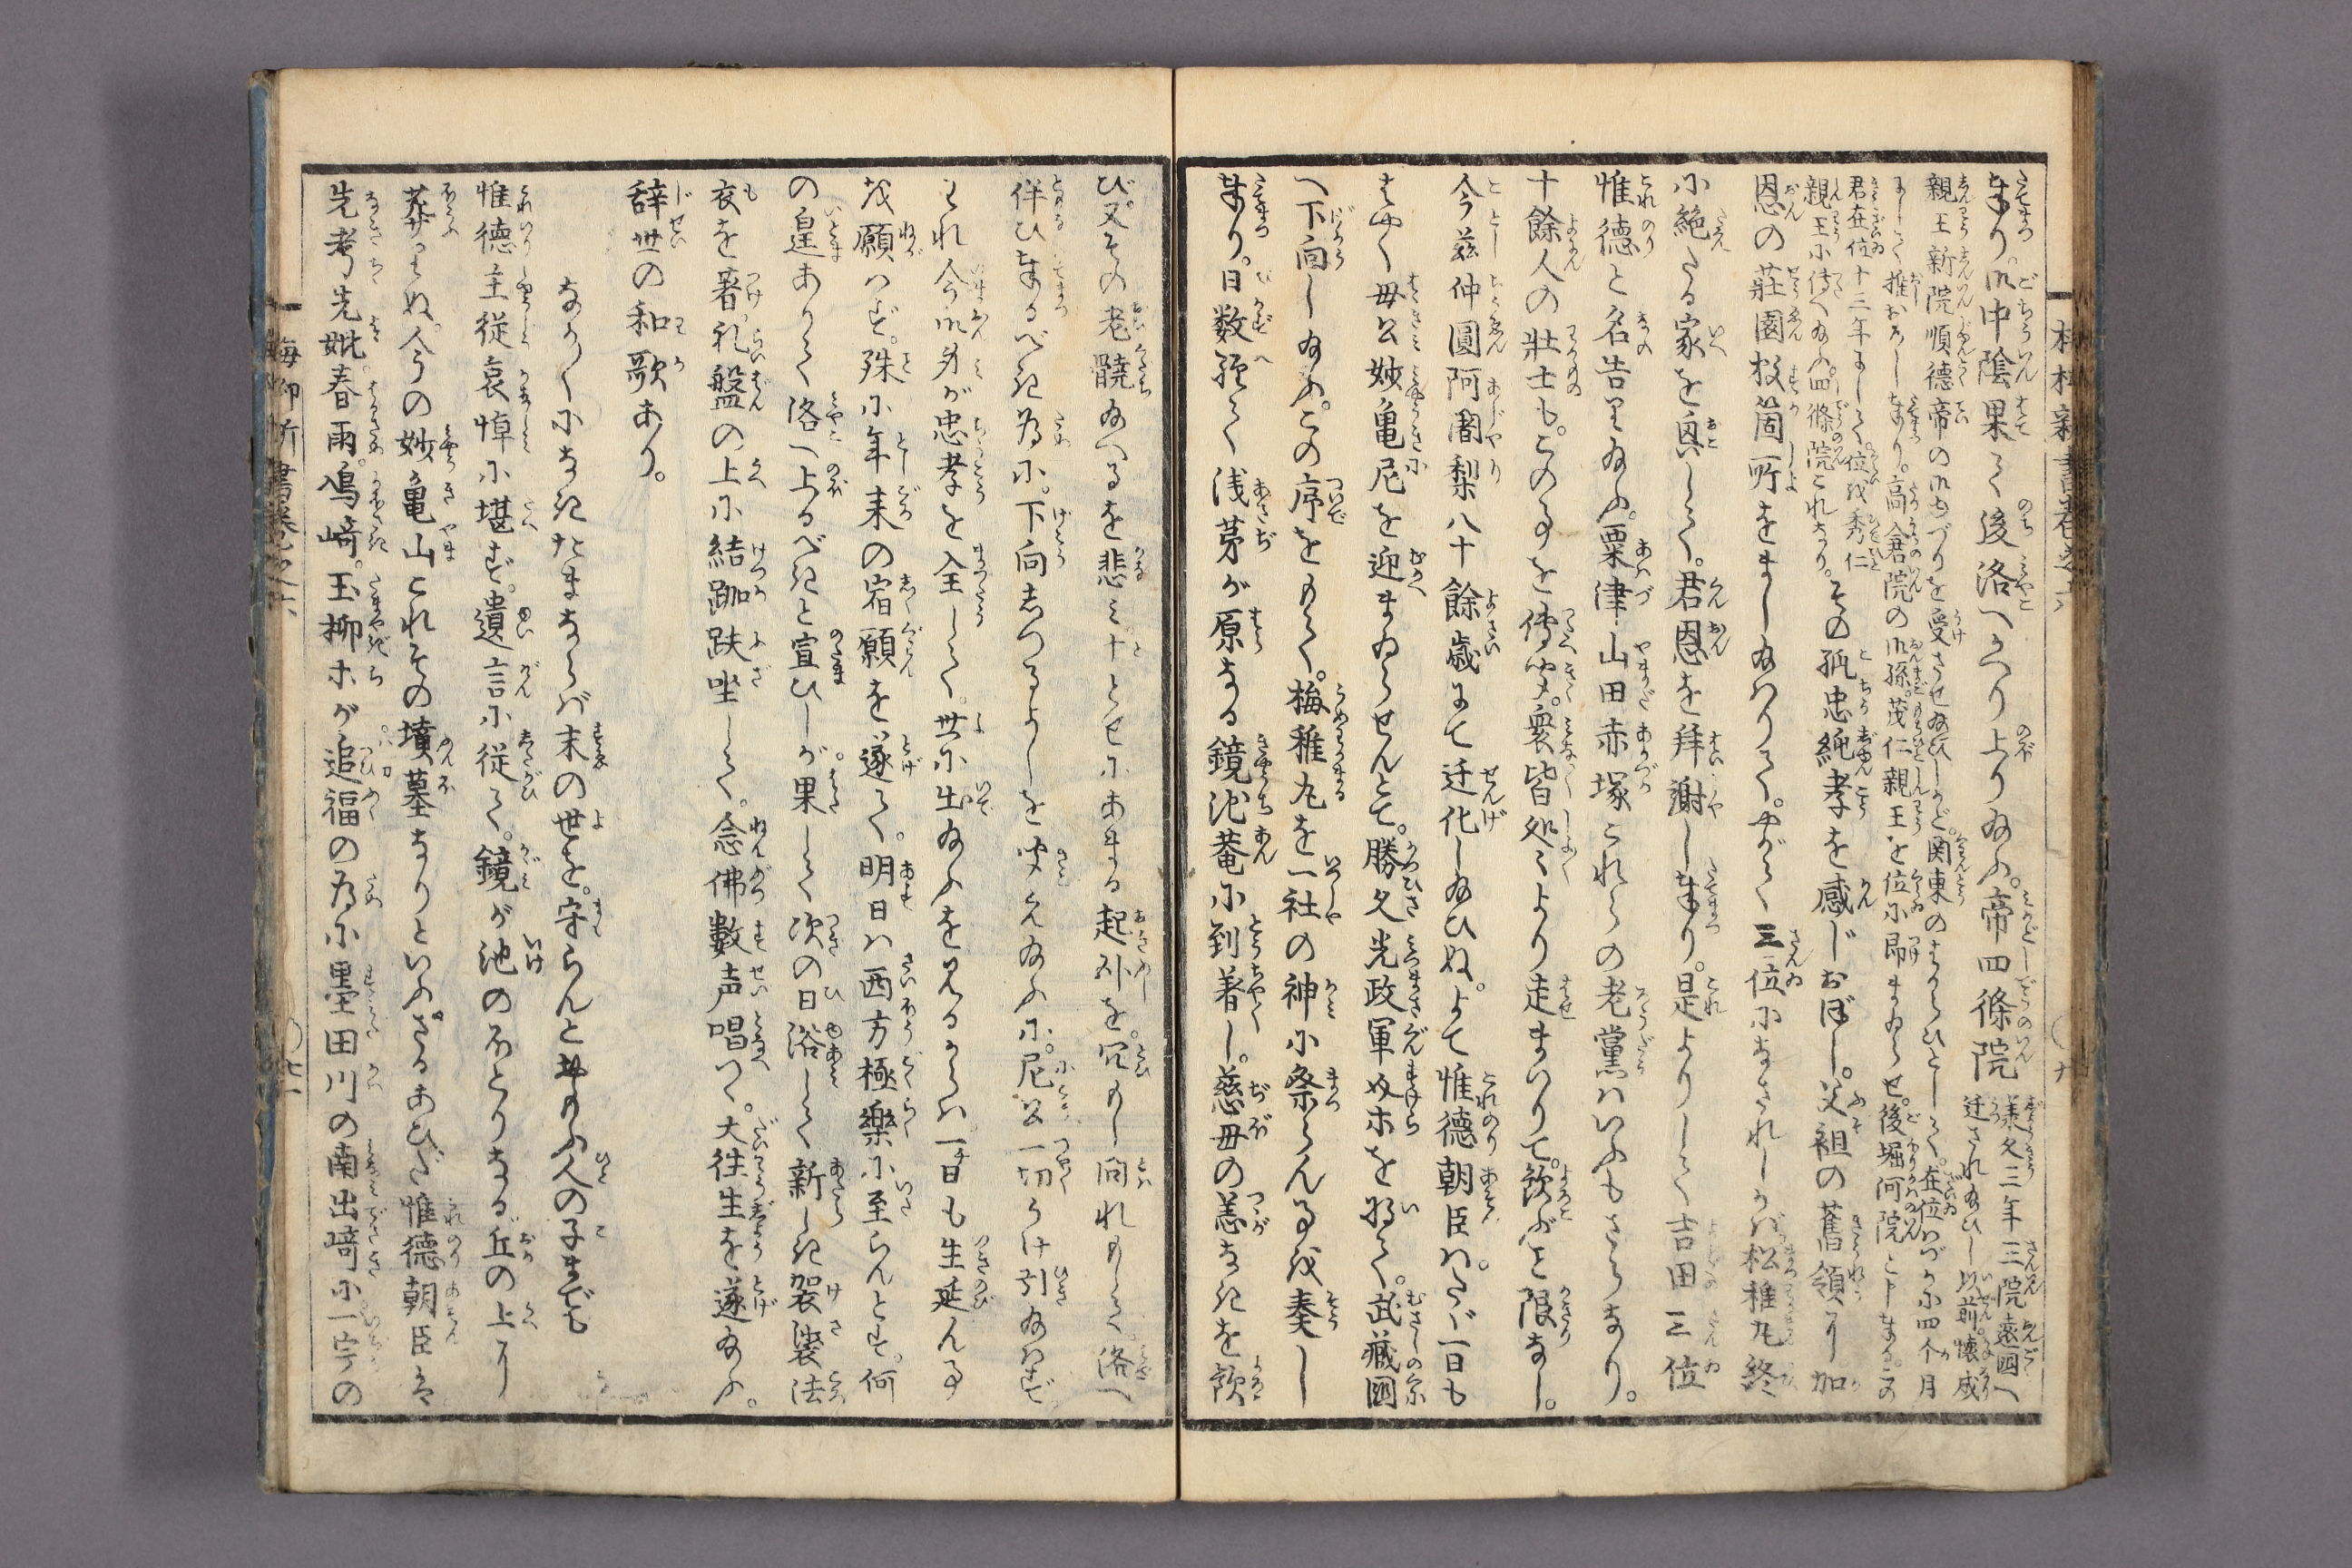 奉り。御中陰果て後洛へかへり上り給ふ。帝四條院
承久三年三院遠国へ
迁され給ひし以前懐成
親王新院順徳帝の御ゆづりを受させ給ひしかど。関東のはからひとして。在位わづかに四个月
にして推おろし奉り。高倉院の御孫。茂仁親王を位に即まゐらせ。後堀河院と申奉る。この
君在位十二年にして。位を秀仁
親王に傳へ給ふ。四條院これなり。
その孤忠純孝を感じおぼし。父祖の舊領に加
恩の莊園数箇所をまし給はりて。やがて三位になされしかば松稚丸終
に絶たる家を興して。君恩を拜謝し奉り。是よりして吉田三位
惟徳と名告り給ふ。粟津山田赤塚これらの老黨はいふもさらなり。
十餘人の壮士も。この事を傳聞。衆皆処々より走まいりて。歓ぶこと限なし。
今茲仲圓阿闍梨八十餘歳にて迁化し給ひぬ。よて惟徳朝臣は。たゞ一日も
はやく母公妙亀尼を迎まゐらせんとて。勝久光政軍奴ホを将て。武蔵國
へ下向し給ふ。この序をもて。梅稚丸を一社の神に祭らん事を奏し
奉り。日数経て浅茅が原なる鏡池菴に到着し。慈母の恙なきを歓
び。又その老䯢給へるを悲み。十とせにあまる起臥を。冗もし問れもして洛へ
伴ひ奉るべき為に。下向しつるよしを聞え給ふに。尼公一切うけ引給はず
われ今御身が忠孝を全して。世に出給ふを見るからは一日も生延ん事
を願はず。殊に年来の宿願を遂て。明日は西方極樂に至らんとす。何
の遑ありて洛へ上るべきと宣ひしが。果して次の日浴して新しき袈裟法
衣を著。礼盤の上に結跏趺坐して。念佛數声唱つゝ。大往生を遂給ふ。
辞世の和歌あり。
なか〳〵になきたまならば末の世を。守らんと思ふ人の子までも
惟徳主従哀悼に堪ず。遺言に従て。鏡が池のほとりなる丘の上に
葬りぬ。今の妙亀山これその墳墓なりといふ。さるあひだ惟徳朝臣は
先考先妣。春雨。鳰﨑。玉柳ホが追福の為に墨田川の南出﨑に一宇の
梅柳新書巻之六